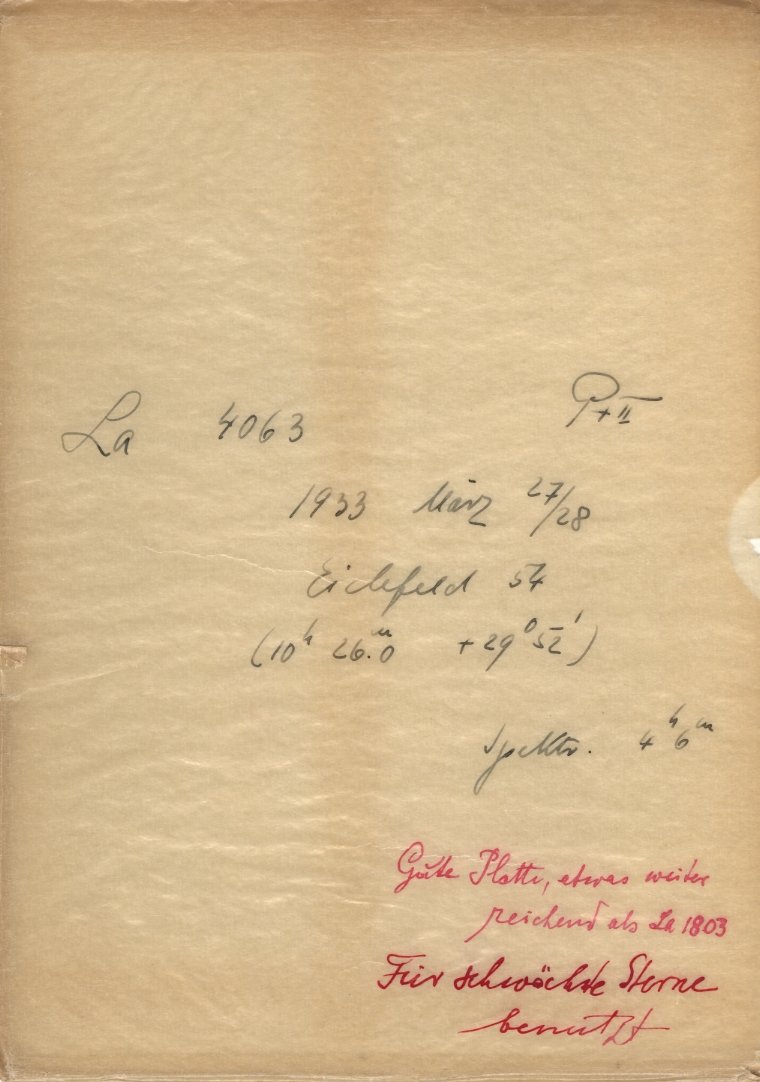 La 4063 P+II
1933 März 27/28
Eichfeld 54
(10ʰ 26.ᵐ0 +29⁰ 52')
Spektr. 4ʰ6ᵐ
Gute Platte, etwas weiter
reichend als La 1803
Für schwächste Sterne
benutzt